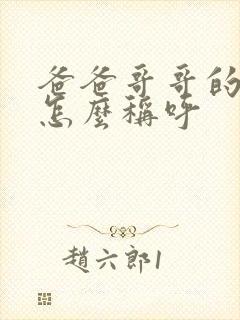 爸爸哥哥的
怎麼稱呼
趙六郎1